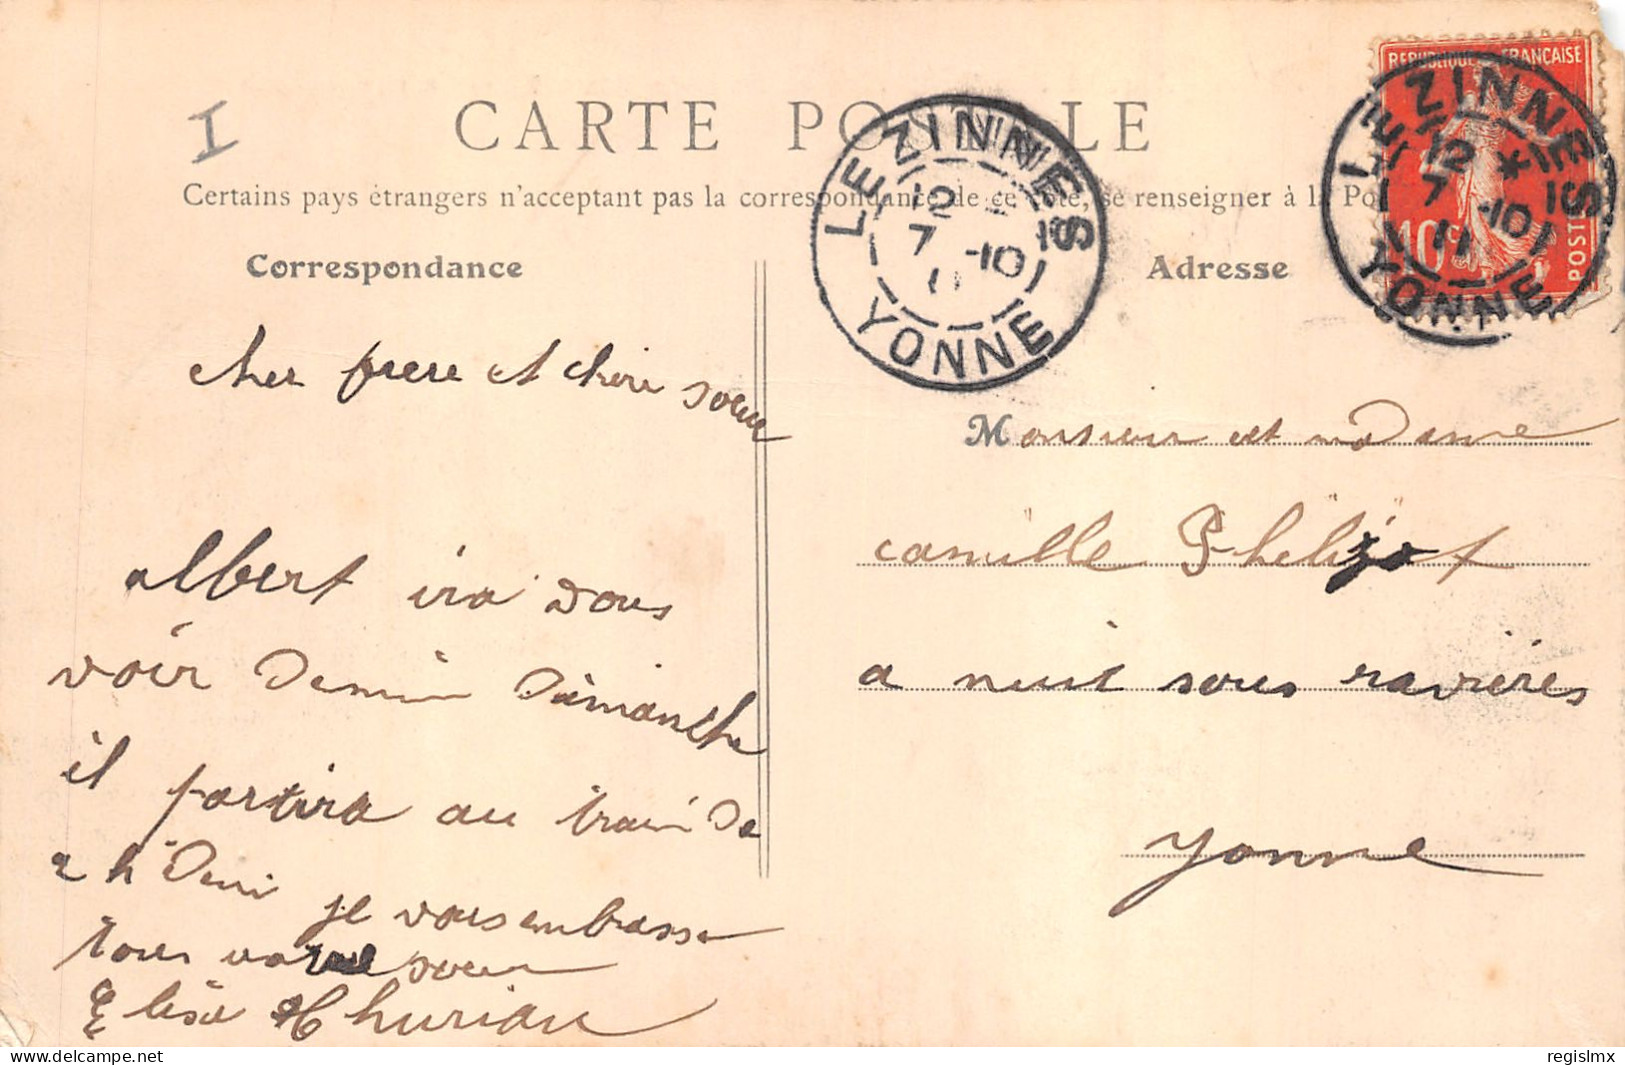 I
CARTE POSTALE
Certains pays étrangers n'acceptant pas la correspondance de ce côté, se renseigner à la Po
Correspondance
cher frere et chere soeur
albert ira vous
voir demin dimanche
il partira au train de
2 h demi je vous embrasse
tous votre soeur
Elisa Thurian
LEZINNES
12
7 -10
11
YONNE
Adresse
REPUBLIQUE FRANÇAISE
10 c
POSTES
LEZINNES
12 *
7 -10
11
YONNE
Monsieur et madame
camille Phelizot
a nuit sous ravieres
yonne
delcampe.net
regislmx